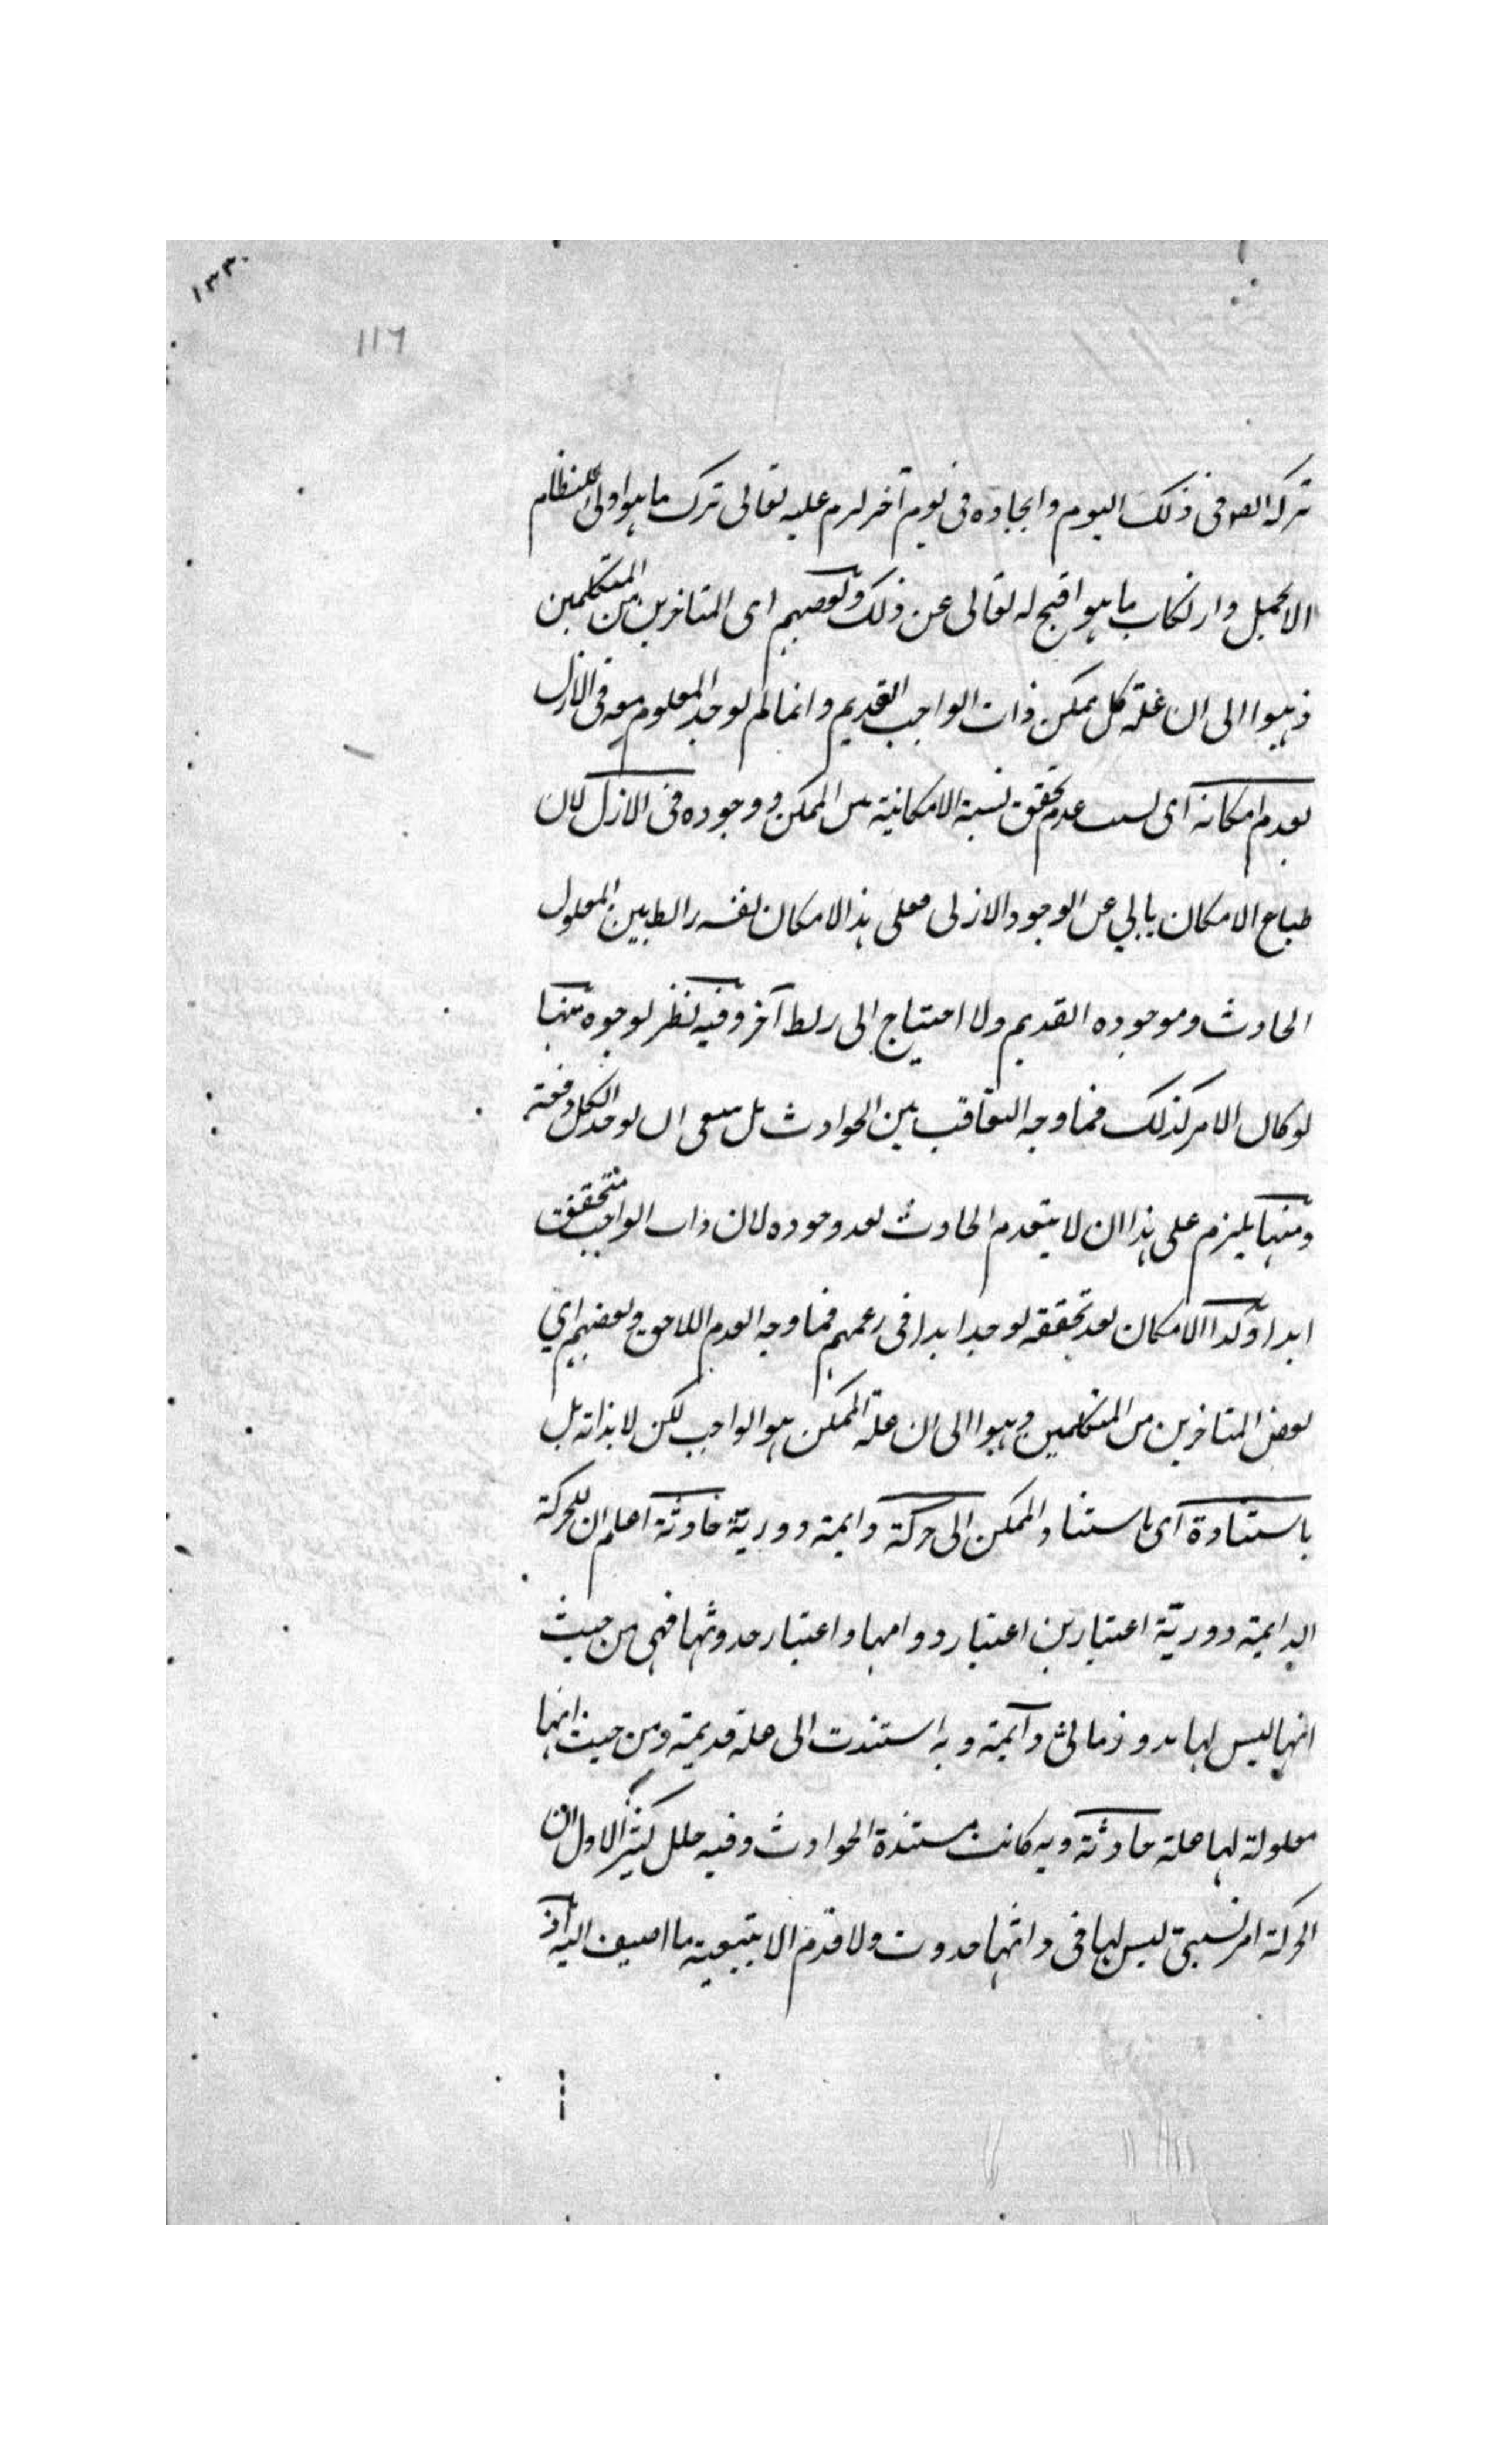 ١٣٣٠
116
تركه الصو فى ذلك اليوم وايجاده فى يوم آخر لزم عليه تعالى ترك ما هو اولى للنظام
الاجمل وارتكاب ما هو اقبح له تعالى عن ذلك وبعضهم اى المتاخرين من المتكلمين
ذهبوا الى ان علة كل ممكن ذات الواجب القديم وانما لم يوجد المعلوم معه فى الازل
لعدم امكانه اى لسبب عدم تحقق نسبة الامكانية بين الممكن ووجوده فى الازل لان
طباع الامكان يابي عن الوجود الازلى فعلى هذا الامكان نفسه رابط بين المعلول
الحادث وموجوده القديم ولا احتياج الى ربط آخر وفيه نظر لوجوه منها
لو كان الامر كذلك فما وجه التعاقب بين الحوادث بل ينبغى ان يوجد الكل دفعة
ومنها يلزم على هذا ان لا ينعدم الحادث بعد وجوده لان ذات الواجب متحققة
ابدا وكذا الامكان بعد تحققه يوجد ابدا فى زعمهم فما وجه العدم اللاحق وبعضهم اي
بعض المتاخرين من المتكلمين ذهبوا الى ان علة الممكن هو الواجب لكن لا بذاته بل
باستنادة اى باستناد الممكن الى حركة دايمة دورية حادثة اعلم ان للحركة
الدايمة دورية اعتبارين اعتبار دوامها واعتبار حدوثها فهى من حيث
انها ليس لها بدو زمانى دآيمة وبه استندت الى علة قديمة ومن حيث انها
معلولة لها علة حادثة وبه كانت مستندة الحوادث وفيه خلل كثير الاول ان
الحركة امر نسبى ليس لها فى ذاتها حدوث ولا قدم الا بتبعية ما اضيف اليه اذ